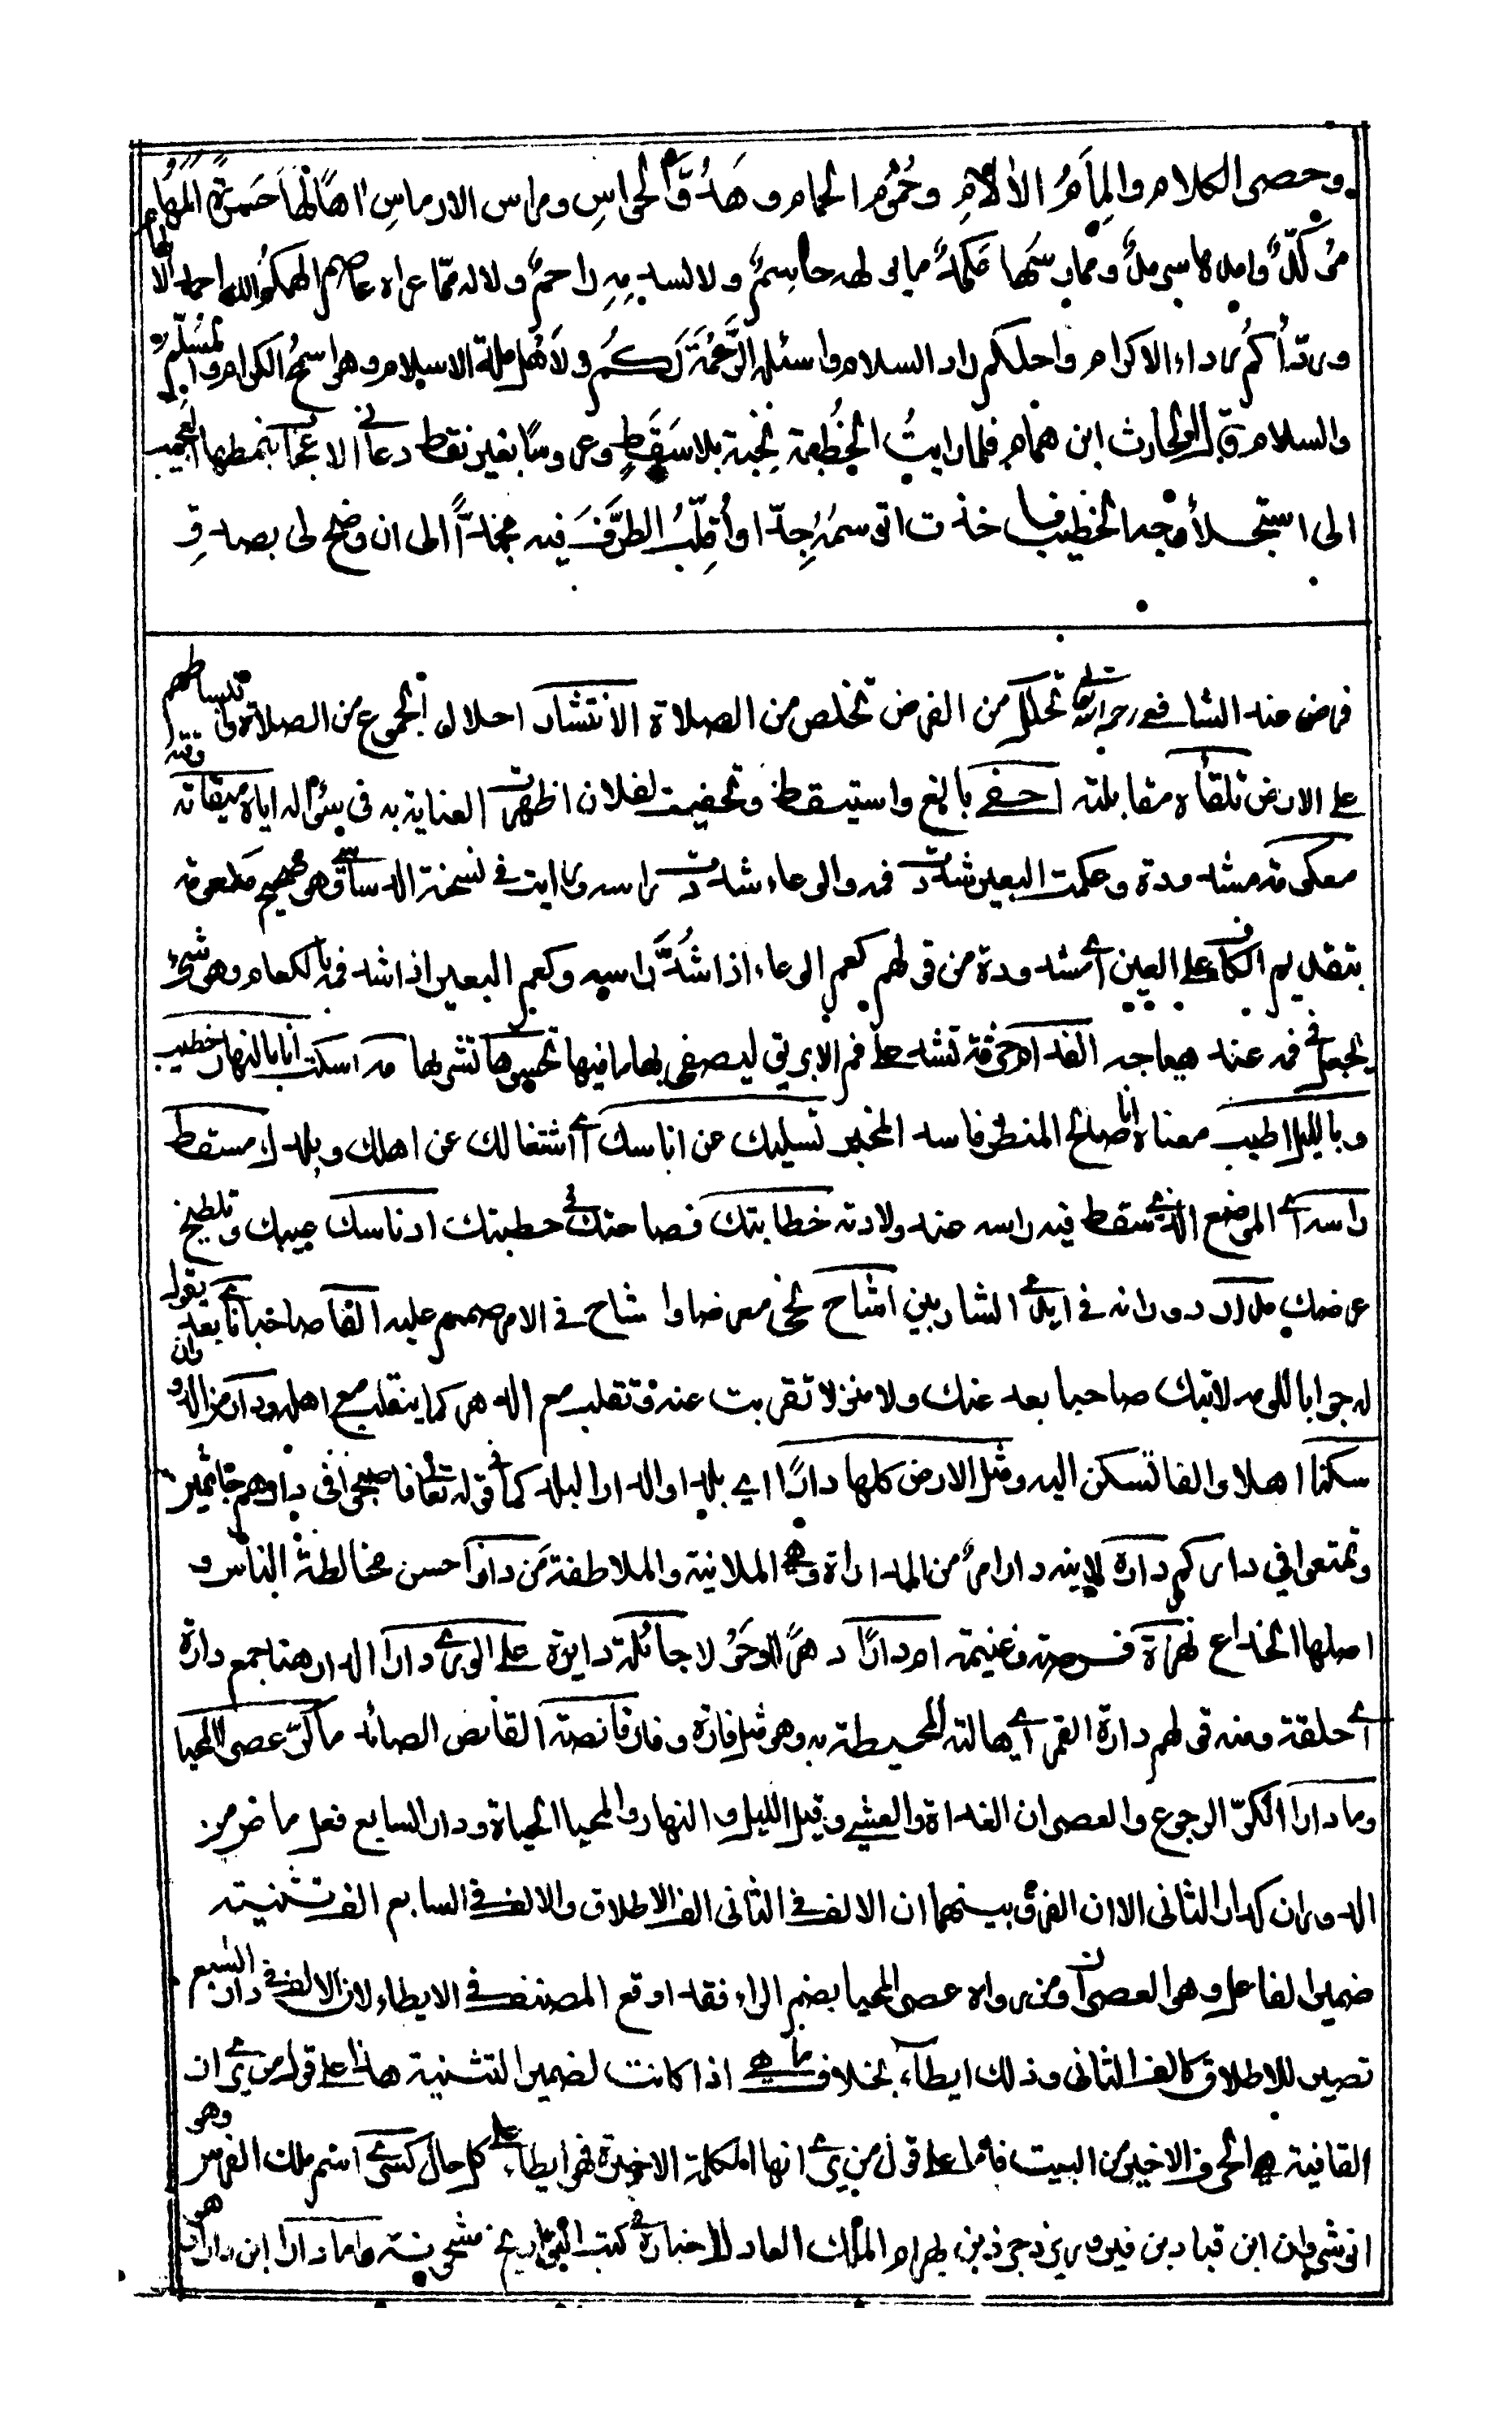 وحصر الكلام والمام الآلام وحموم الحمام وهدوّ الحواس ومراس الارماس اها لها حسرة المها
مؤكد وامدها سرمد وممارسها مكمد ما لولهه حاسم ولا لسدمه راحم ولا له مما عراه عاصم الهمكم الله احمد الالهام
وردأكم رداء الاكرام واحلكم دار السلام واسئله الرحمة لكم ولاهل ملة الاسلام وهو اسمح الكرام والمسلم
والسلام قال الحارث ابن همام فلما رايت الخطبة نخبة بلا سقط وعروسا بغير نقط دعاني الاعجاب بنمطها العجيب
الى استجلاء وجه الخطيب فاخذت اتوسمه جدا واقلب الطرف فيه مجدا الى ان وضح لى بصدق
فرض عند الشافعى رحمه الله تحلل من الفرض تخلص من الصلاة الانتشار احلال الجموع من الصلاة
على الارض تلقاه مقابلته احفى بالغ واستسقط وتحفيت لفلان اظهرت العناية به فى سؤاله اياه ميقاته وقته
معكومة مشدودة وعكمت البعير شددت فمه والوعاء شددت راسه ورايت فى نسخة مكعومة
بتقديم الكاف على العين اى مشدودة من قولهم كعم الوعاء اذا شد راسه وكعم البعير اذا شد فمه بالكعام وهو شىء
يجعل فى فمه عند هياجه الفدام خرقة تشد على فم الابريق ليصفى بها ما فيها تحسوها تشربها مه اسكت انا بالنهار خطيب
وبالليل اطيب معناه انا صالح المنظر فاسد المخبر تسليك عن اناسك اى اشتغالك عن اهلك وبلدك مسقط
راسه اى الموضع الذى سقط فيه راسه عند ولادته خطابتك فصاحتك فى خطبتك ادناسك عيبك وتلطيخ
عرضك مدار دورانه فى ايدى الشاربين اشاح نحى معرضا واشاح فى الامر صمم عليه الفا صاحبا ناى بعد يقول
له جوابا للومه لا تبك صاحبا بعد عنك ولا منزلا تقربت عنه وتقلب مع الدهر كما ينقلب مع اهله ودار من الدوران
سكنا اهلا والفا تسكن اليه ومثل الارض كلها دارا اى بلد او الدار البلد كما فى قوله تعالى فاصبحوا فى دارهم جاثمين
وتمتعوا في داركم داره لاينه دار امر من المداراة وهى الملاينة والملاطفة من دارا حسن مخالطة الناس و
اصلها الخداع نهزة فرصة وغنيمة ام دارا دهرا او حولا جائلة دايرة على الورى دارا الدار هنا جمع دارة
اى حلقة ومنه قولهم دارة القمر اى هالته المحيطة به وهو مثل قارة وقار قانصة القانص الصائد ما كر عصر المحيا
وما دارا الكر الرجوع والعصران الغداة والعشى وقيل الليل والنهار والمحيا الحياة ودار السابع فعل ماض من
الدوران كدار الثانى الا ان الفرق بينهما ان الالف فى الثانى الف الاطلاق والالف فى السابع الف تثنية
ضمير الفاعل وهو العصران ومن رواه عصر المحيا بضم الراء فقد اوقع المصنف فى الايطاء لان الالف فى دار السبع
تصير للاطلاق كالف الثانى وذلك ايطاء بخلاف ما هى اذا كانت لضمير التثنية هذا على قول من يرى ان
القافية هى الحرف الاخير من البيت فاما على قول من يرى انها الكلمة الاخيرة فهو ايطاء على كل حال كسرى اسم ملك الفرس وهو
انوشروان ابن قباد بن فيروز بن يزدجرد بن بهرام الملك العادل اخباره فى كتب التواريخ مشحونة واما دارا ابن داراب هو